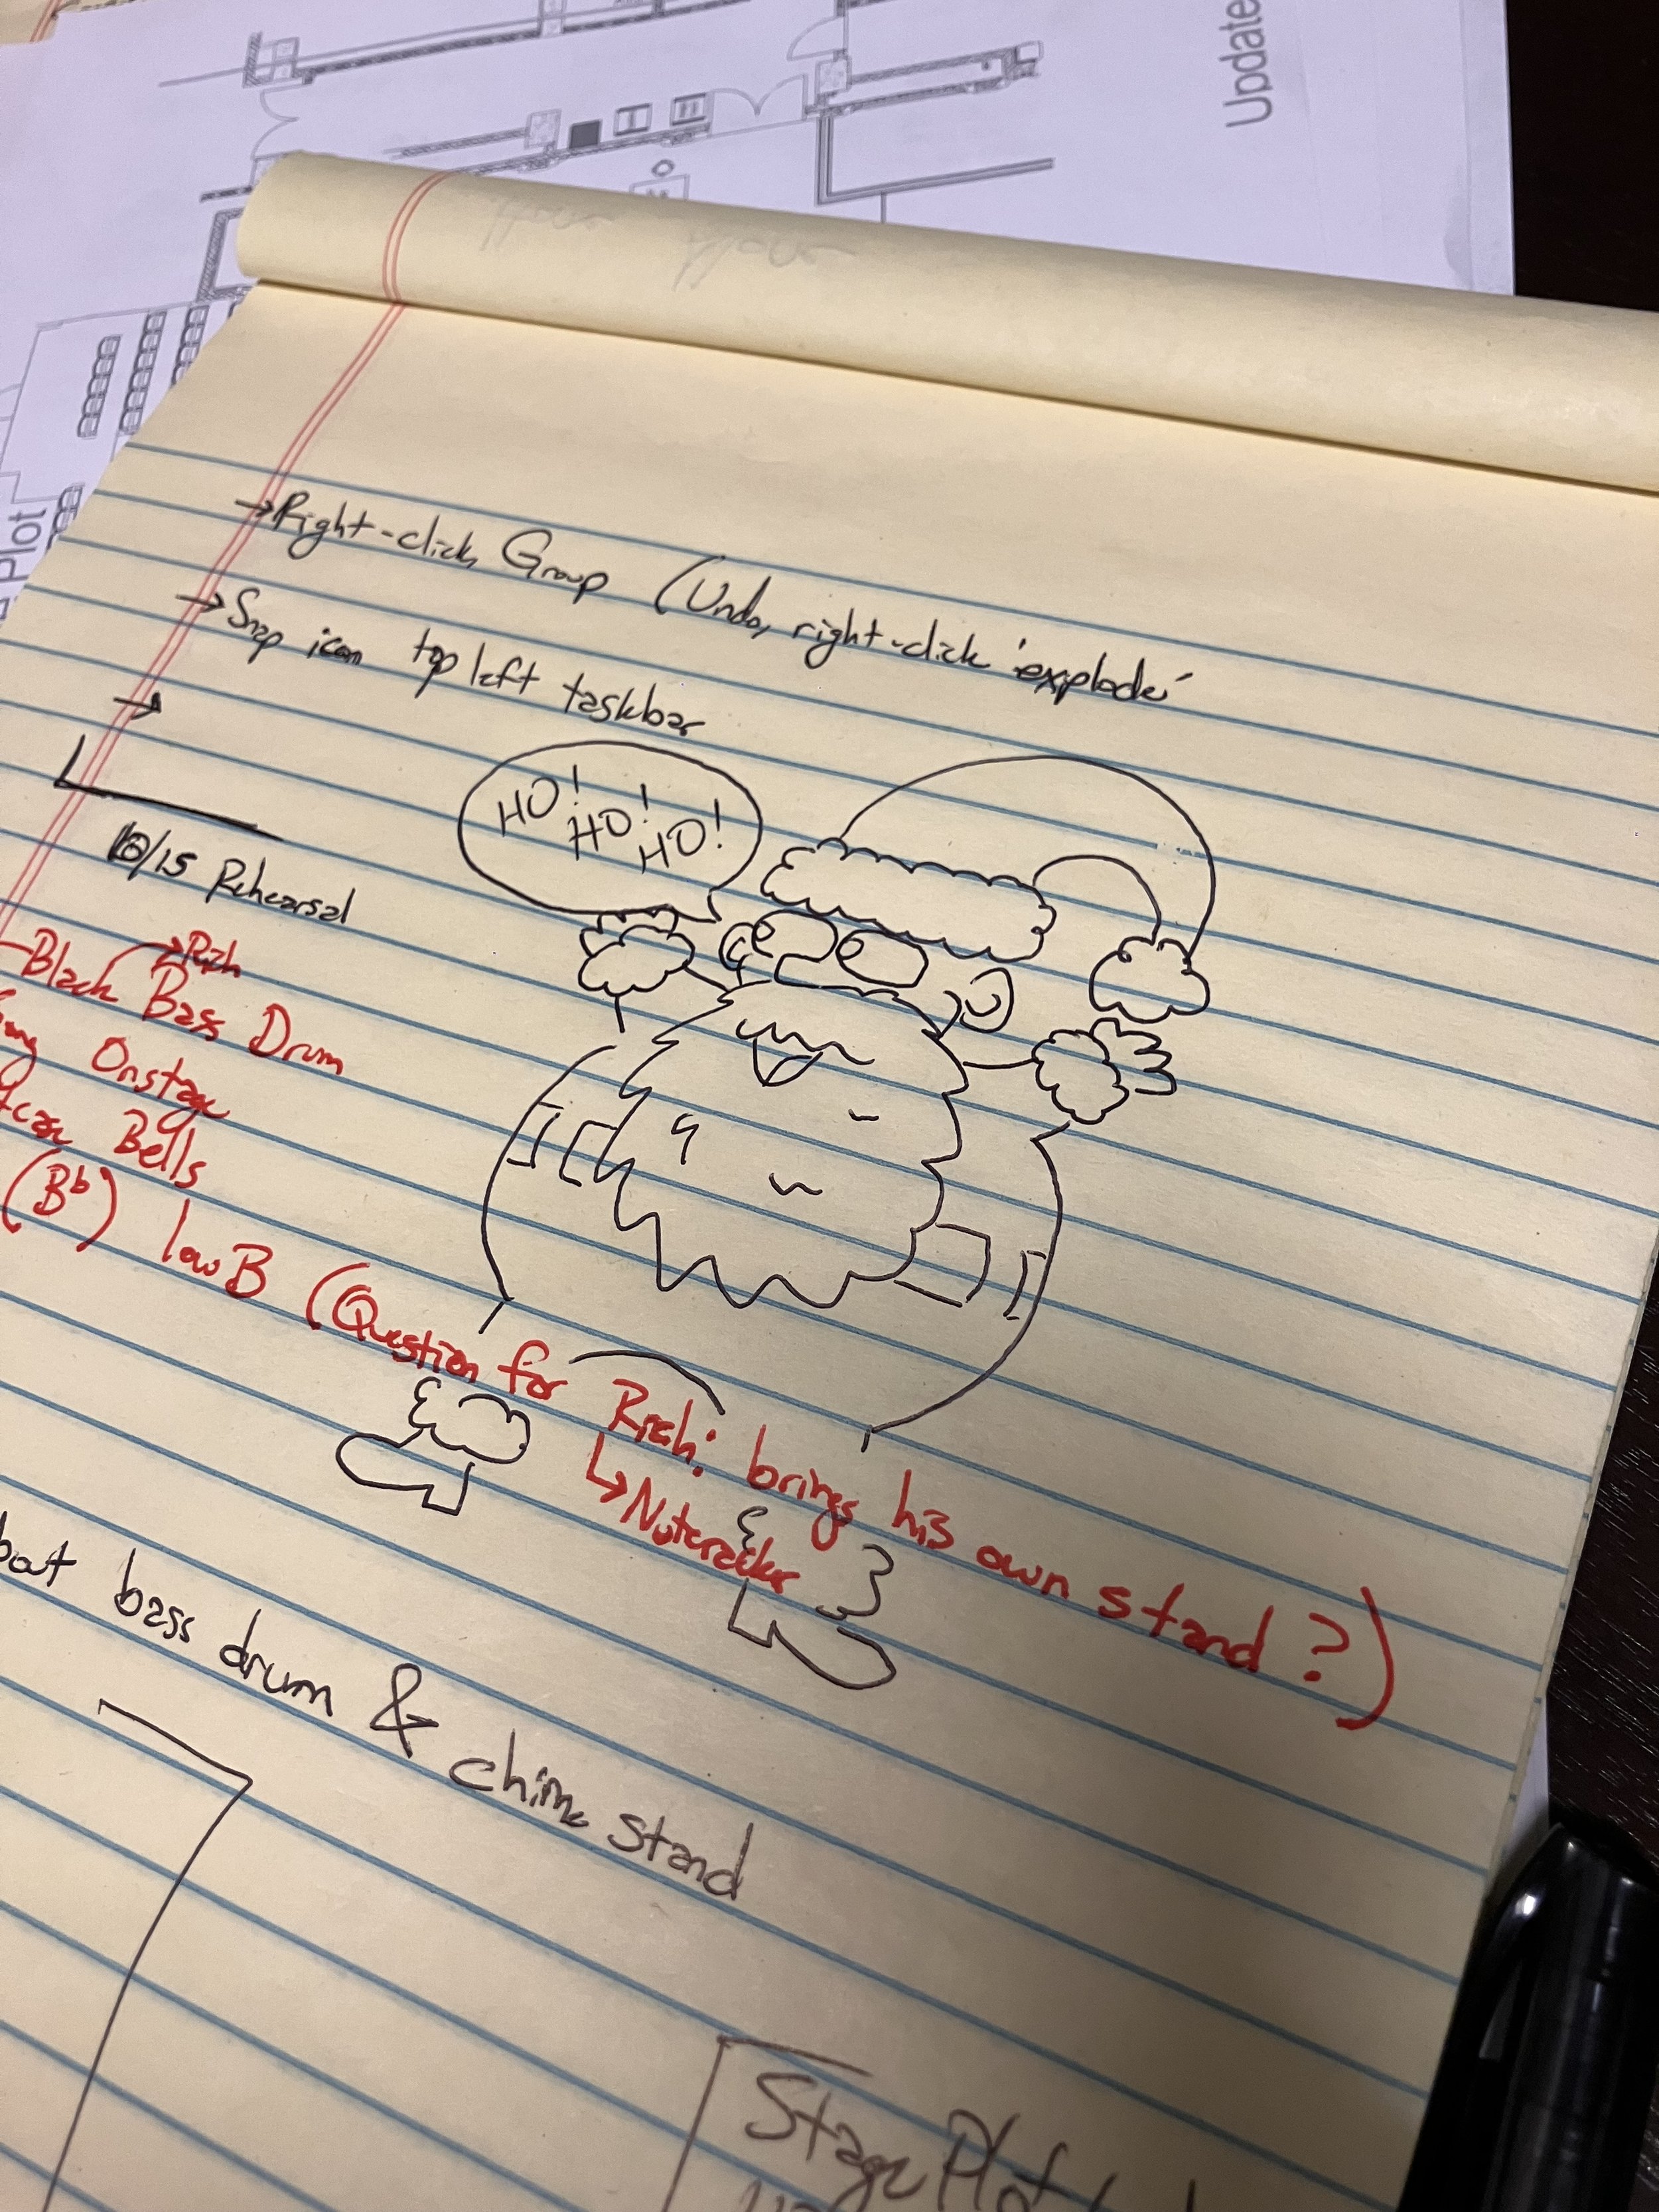 Update
Plot
→ Right-click Group (Undo, right-click 'explode'
→ Snap icon top left taskbar
→
HO!
HO!
HO!
10/15 Rehearsal
→ Rich
Black Bass Drum
Onstage
Bells
(Bb) low B (Question for Rich: brings his own stand?)
↳ Nutcracker
bout bass drum & chime stand
Stage Plot